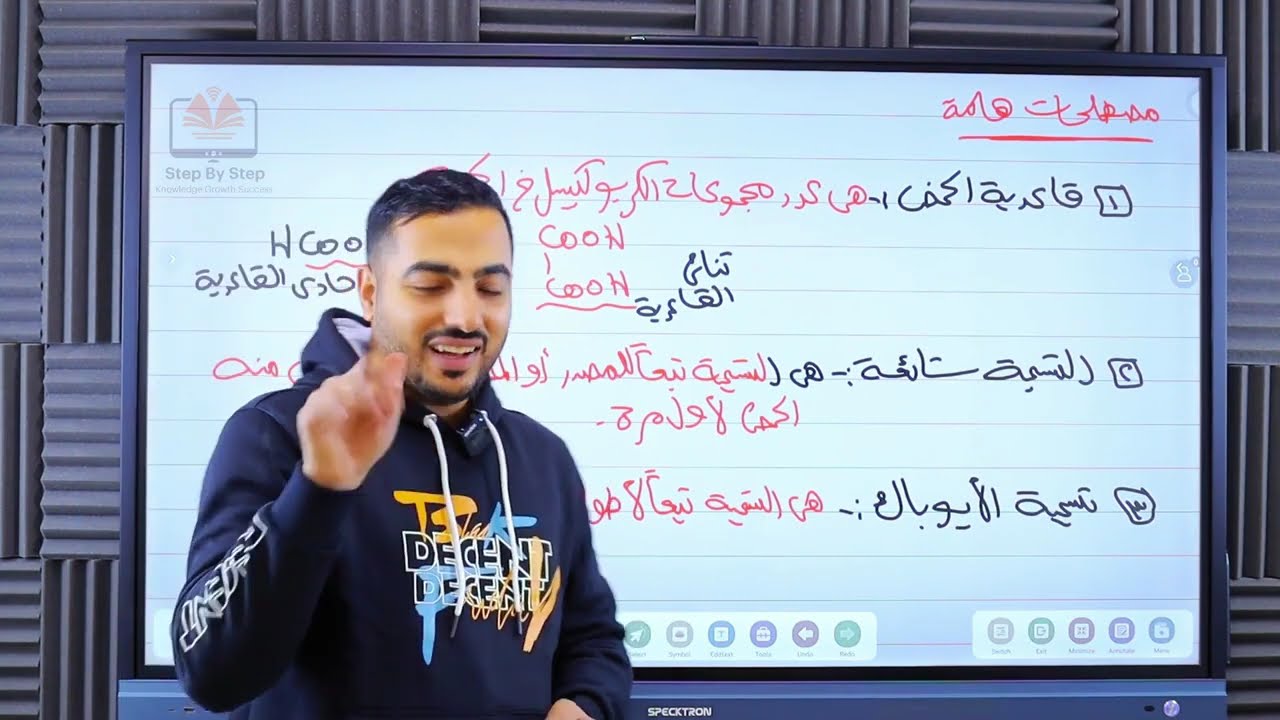 Step By Step
Knowledge Growth Success
مصطلحات هامة
١ قاعدية الحمض :- هى عدد مجموعات الكربوكسيل فى
HCOO
COOH
COOH
ثنائى القاعدية
أحادى القاعدية
٢ التسمية شائعة :- هى التسمية تبعاً للمصدر أو منه
الحمض لأول مرة .
٣ تسمية الأيوباك :- هى التسمية تبعاً لأطو
DECENT
DECENT
Select
Symbol
EddSeat
Tools
Undo
Redo
Switch
Exit
Minimize
Annotate
Menu
SPECKTRON